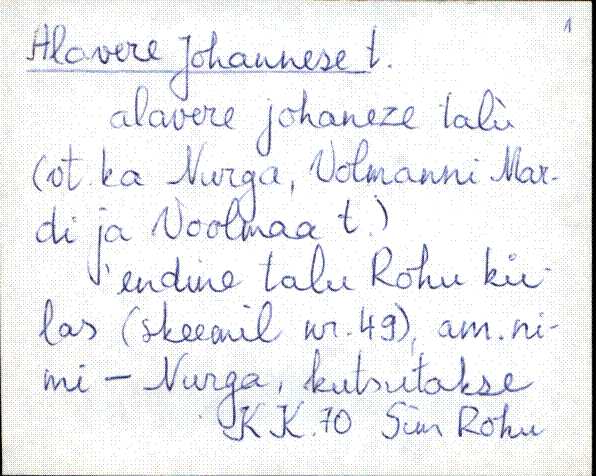 1
Alavere Johannese t.
alavere johaneze talù
(vt. ka Nurga, Volmanni Mar-
di ja Voolmaa t.)
'endine talu Rohu kü-
las (skeemil nr. 49), am. ni-
mi – Nurga, kutsutakse
KK. 70 Sim Rohu